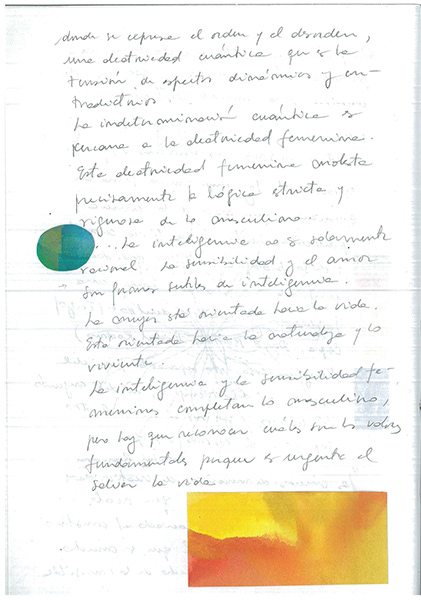 donde se expresa el orden y el desorden,
una aleatoriedad cuántica que es la
tensión de aspectos dinámicos y con-
tradictorios.
La indeterminación cuántica es
cercana a la aleatoriedad femenina.
Esta aleatoriedad femenina molesta
precisamente la lógica estricta y
rigurosa de lo masculino.
... La inteligencia no es solamente
racional. La sensibilidad y el amor
son formas sutiles de inteligencia.
La mujer está orientada hacia la vida.
Está orientada hacia la naturaleza y lo
viviente.
La inteligencia y la sensibilidad fe-
meninas completan lo masculino,
pero hay que reconocer cuáles son los valores
fundamentales porque es urgente el
salvar la vida